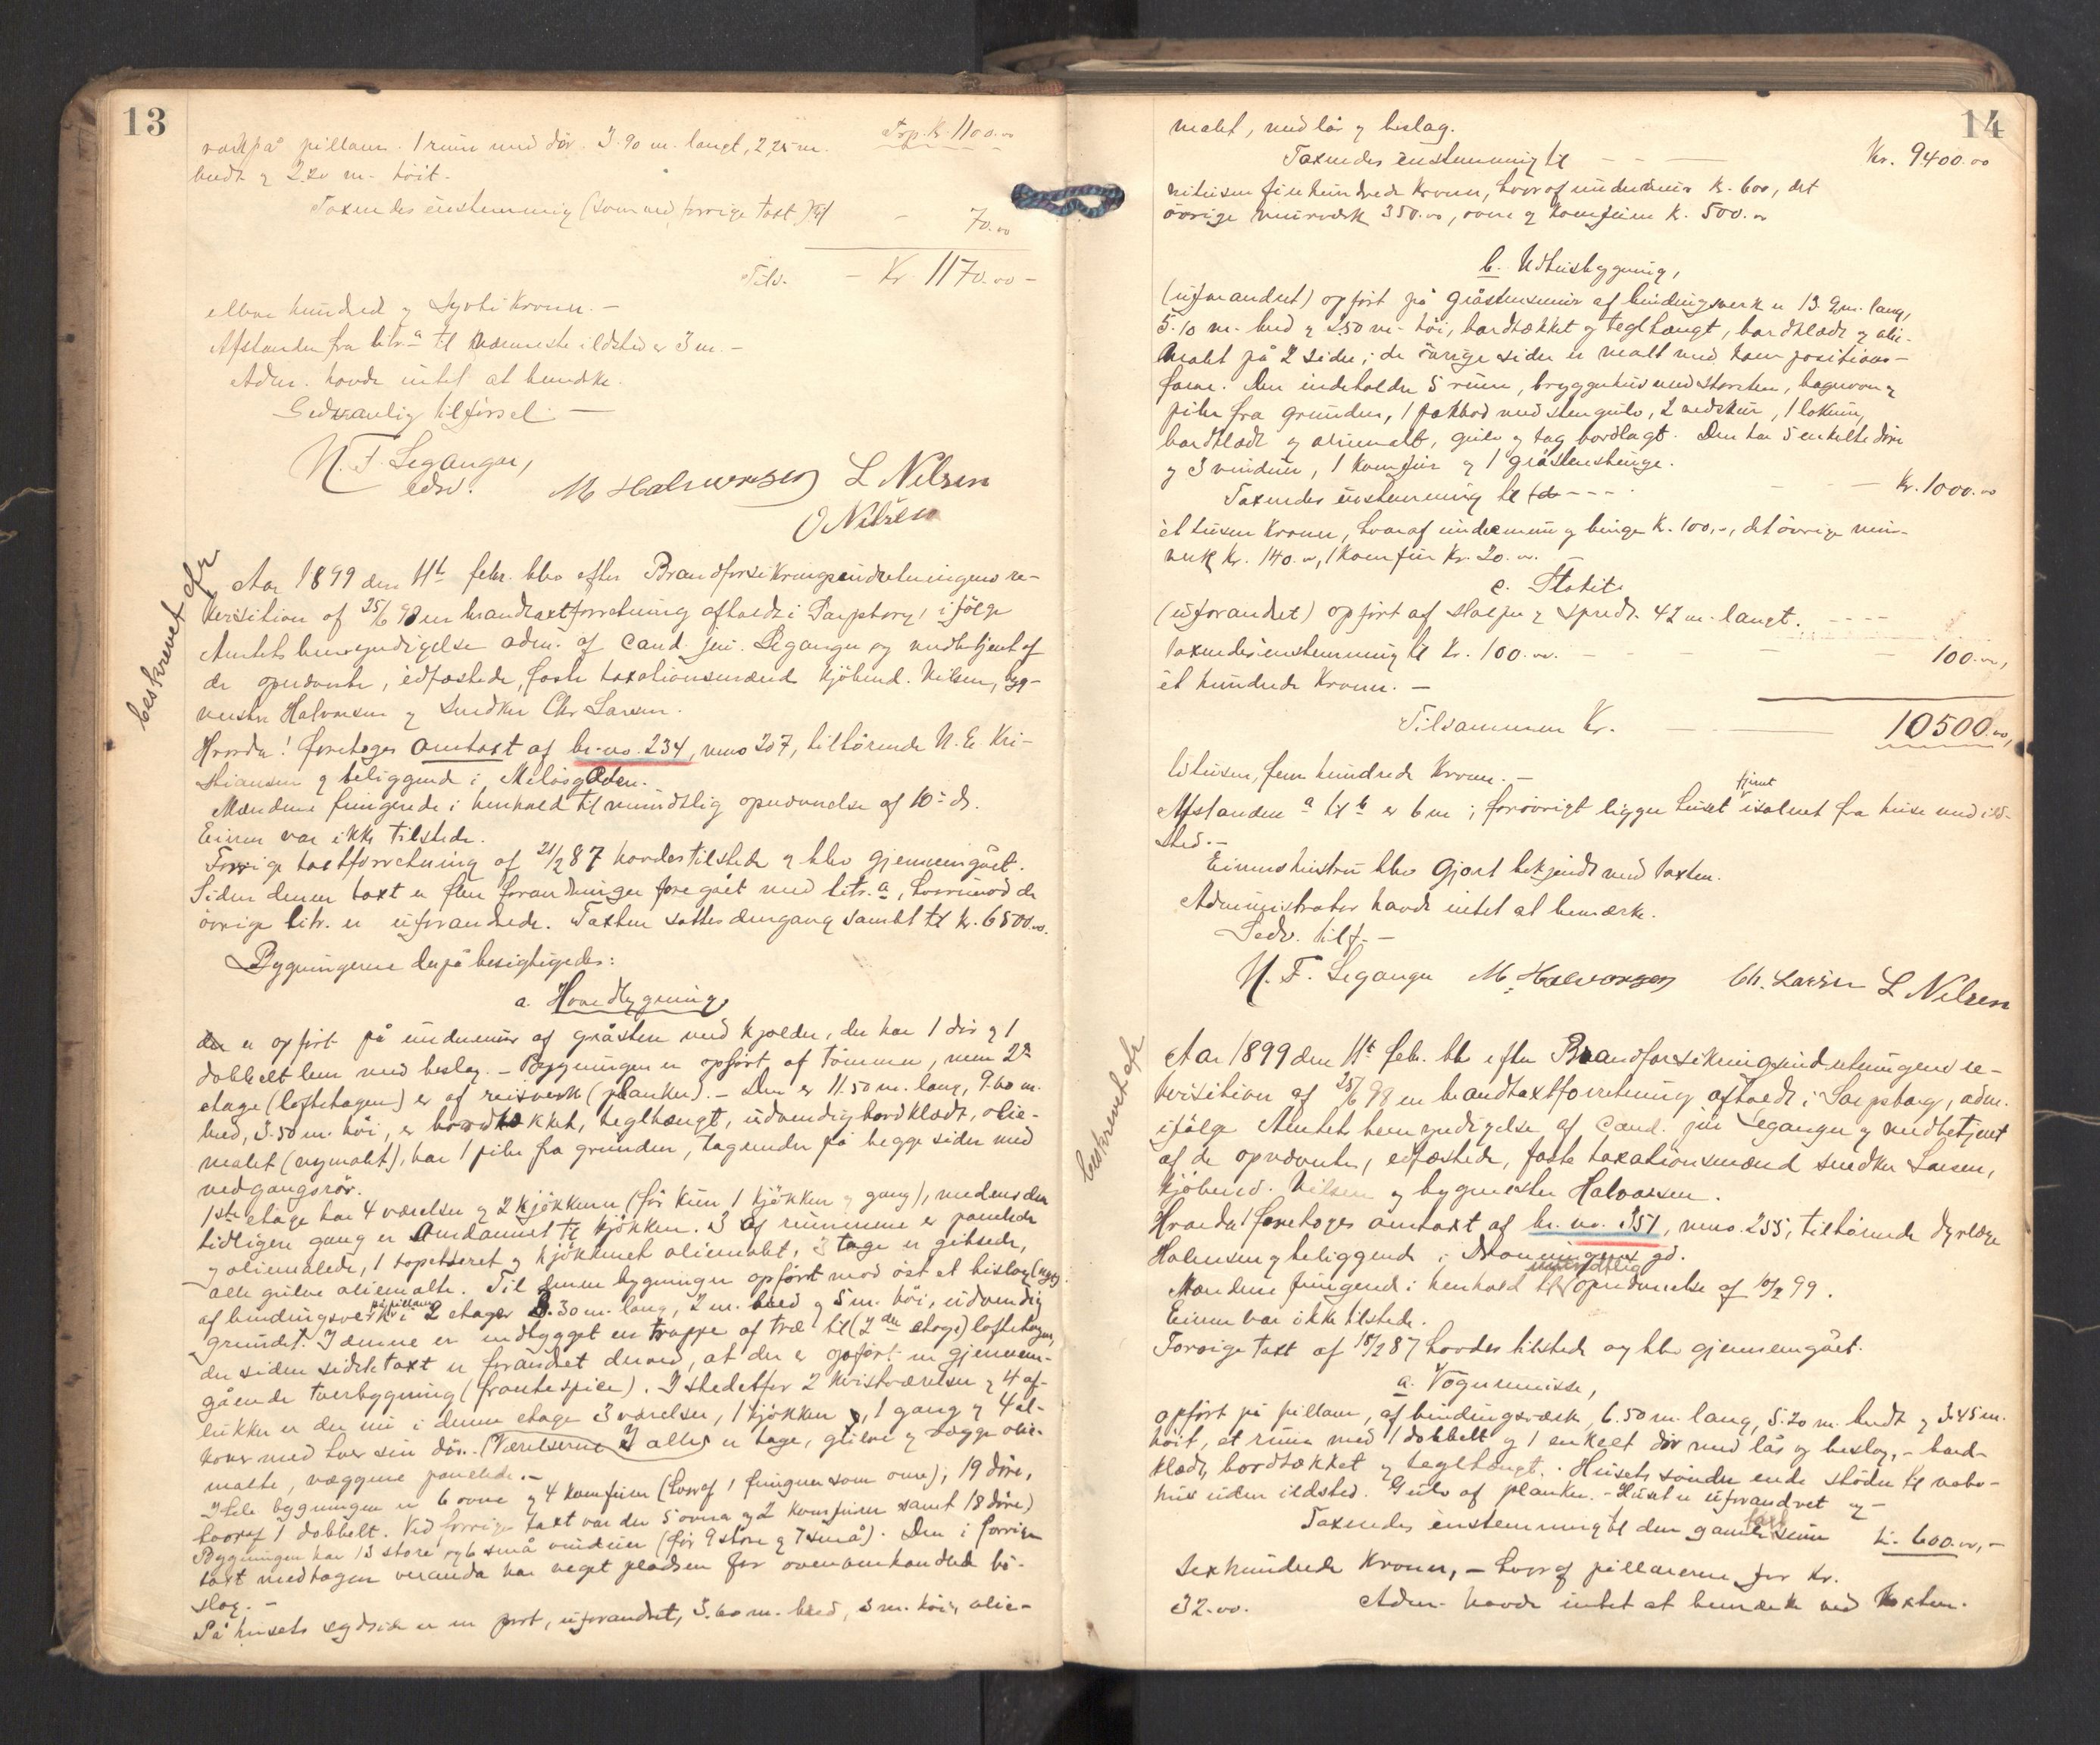 13
Trsp. Kr. 1100.00
værk på pillarer. 1 rum med dör. 3.90 m. langt, 2,25 m.
bredt og 2.20 m. höit.
Taxeredes enstemmig (som ved forrige taxt) til - 70.00
Tils. - Kr. 1170.00 -
elleve hundred og sytti Kroner. -
Afstanden fra litr. a til nærmeste ildsted er 3 m. -
Adm. havde intet at bemærke.
Sedvanlig tilförsel. -
N. F. Leganger,
edsv. M Halvorsen L Nilsen
O Nilsen
beskrevet afr
Aar 1899 den 11te febr. blev efter Brandforsikringsindretningens re-
kvisition af 25/6 98 en brandtaxtforretning afholdt i Sarpsborg, ifölge
Amtets bemyndigelse adm. af cand. jur. Leganger og medbetjent af
de opnævnte, edfæstede, faste taxationsmænd kjöbmd. Nilsen, byg-
mester Halvorsen og Snedker Chr Larsen.
Hvorda! foretoges omtaxt af br. no. 234, mno 207, tilhörende N. E. Kri-
stiansen og beliggende i Melösgaden.
Mændene fungerede i henhold til mundtlig opnævnelse af 10de ds.
Eieren var ikke tilstede.
Forrige taxtforretning af 21/2 87 havdes tilstede og blev gjennemgået.
Siden denne taxt er flere forandringer foregået med litr. a, hvorimod de
övrige litr. er uforandrede. Taxten sattes dengang samlet til kr. 6500.00.
Bygningerne derpå besigtigedes:
a. Hovedbygning,
der er opfört på undermur af gråsten med kjelder, der har 1 dör og 1
dobbelt lem med beslag. - Bygningen er opfört af tömmer, men 2den
etage (loftetagen) er af reisverk (planker). - Den er 11.50 m. lang, 9.60 m.
bred, 3.50 m. höi, er bordtækket, teglhængt, udvendig bordklædt, olie-
malet (nymalet), har 1 pibe fra grunden, tagrender på begge sider med
nedgangsrör.
1ste etage har 4 værelser og 2 kjökkener (för kun 1 kjökken og gang), medens den
tidligere gang er omdannet til kjökken. 3 af rummene er panelede
og oliemalede, 1 tapetseret og kjökkenet oliemalt, 3 tage er gibsede,
alle gulve oliemalte. Til denne bygning er opfört mod öst et bislag (nyt)
af bindingsverk på pillarer i 2 etager 3.30 m. lang, 2 m. bred og 5 m. höi, udvendig
grundet. I denne er indbygget en trappe af træ til (2den etage) loftetagen,
der siden sidste taxt er forandret derved, at der er opfört en gjennem-
gående tverbygning (frontespice). I stedetfor 2 kvistværelser og 4 af-
lukker er der nu i denne etage 3 værelser, 1 kjökken, 1 gang og 4 al-
kover med hver sin dör. (Værelserne I alle) er tage, gulve og vægge olie-
malte, væggene panelede. -
I hele bygningen er 6 ovne og 4 komfurer (hvoraf 1 fungerer som ovn); 19 döre,
hvoraf 1 dobbelt. Ved forrige taxt var der 5 ovne og 2 komfurer samt 18 döre)
Bygningen har 13 store og 6 små vinduer (för 9 store og 7 små). Den i forrige
taxt medtagne veranda har veget pladsen for ovenomhandlede bi-
slag. -
På husets sydside er en port, uforandret, 3.60 m. bred, 3 m. höi, olie-
14
malet, med lås og beslag.
Taxeredes enstemmig til - - - Kr. 9400.00
nitusen firehundrede kroner, hvoraf undermur k. 600, det
övrige murværk 350.00, ovne og komfurer k. 500.00
b. Udhusbygning,
(uforandret) opfört på gråstensmur af bindingsverk er 13.90 m. lang,
5.10 m. bred og 2.50 m. höi, bordtækket og teglhængt, bordklædt og olie-
malet på 2 sider; de övrige sider er malt med kompositions-
farve. Den indeholder 5 rum, bryggerhus med skorsten, bagerovn og
piber fra grunden, 1 pakbod med stengulv, 2 vedskur, 1 lokum,
bordklædt og oliemalt, gulv og tag bordlagt. Den har 5 enkelte döre
og 3 vinduer, 1 komfur og 1 gråstensbinge.
Taxeredes enstemmig til - - - - Kr. 1000.00
et tusen kroner, hvoraf undermur og binge k. 100,-, det övrige mur-
verk kr. 140.00, 1 komfur kr. 20.00. -
c. Stakit
(uforandret) opfört af stolper og spredt. 42 m. langt. - - - -
taxeredes enstemmig til kr. 100.00. - - - 100.00,
et hundrede kroner. -
Tilsammen Kr. - 10500.00,
titusen, fem hundrede kroner. -
Afstanden a til b er 6 m; forövrigt ligger huset fjernt isolret fra huse med ild-
sted. -
Eierens hustru blev gjort bekjendt med taxten.
Administrator havde intet at bemærke.
Sedv. tilf. -
N. F. Leganger M. Halvorsen Ch. Larsen L Nilsen
beskrevet afr
Aar 1899 den 11te feb. blev efter Brandforsikringsindretningens re-
kvisition af 25/6 98 en brandtaxtforretning afholdt i Sarpsborg, adm.
ifölge Amtets bemyndigelse af cand. jur Leganger og medbetjent
af de opnævnte, edfæstede, faste taxationsmænd snedker Larsen,
kjöbmd. Nilsen og bygmester Halvorsen.
Hvorda! foretoges omtaxt af br. no. 151, mno. 255, tilhörende dyrlæge
Holmsen og beliggende i Dronningens gd.
Mændene fungerede i henhold til mundtlig opnævnelse af 10/2 99.
Eieren var ikke tilstede.
Forrige taxt af 18/2 87 havdes tilstede og blev gjennemgået.
a. Vognremisse,
opfört på pillarer, af bindingsværk, 6.50 m. lang, 5.20 m. bredt og 3.45 m.
höit, et rum med 1 dobbelt og 1 enkelt dör med lås og beslag, - bord-
klædt, bordtækket og teglhængt. - Husets söndre ende stöder til nabo-
hus uden ildsted. Gulv af planker. - Huset er uforandret og -
Taxeredes enstemmig til den gamle taxtsum kr. 600.00, -
sexhundrede kroner, - hvoraf pillarerene for kr.
32.00. Adm. havde intet at bemærke ved taxten.